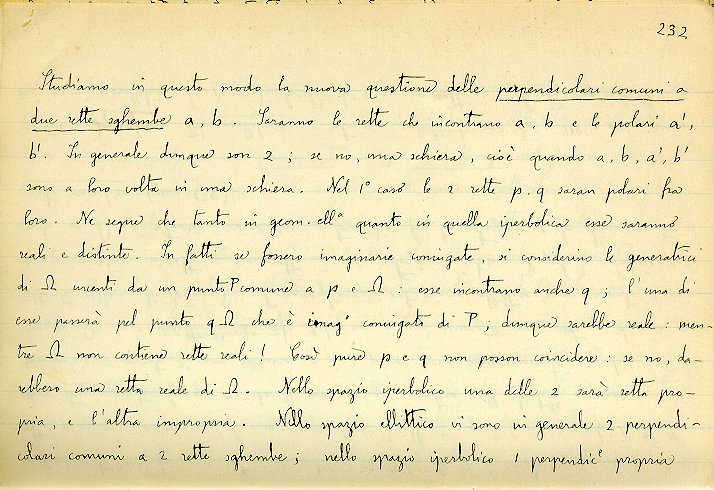 232
Studiamo in questo modo la nuova questione delle perpendicolari comuni a
due rette sghembe a, b. Saranno le rette che incontrano a, b e le polari a',
b'. In generale dunque son 2; se no, una schiera, cioè quando a, b, a', b'
sono a loro volta in una schiera. Nel 1° caso le 2 rette p, q saran polari fra
loro. Ne segue che tanto in geom. ell.ª quanto in quella iperbolica esse saranno
reali e distinte. In fatti se fossero imaginarie coniugate, si considerino le generatrici
di Ω uscenti da un punto P comune a p e Ω: esse incontrano anche q; l'una di
esse passerà pel punto q Ω che è imag.° coniugato di P; dunque sarebbe reale: men-
tre Ω non contiene rette reali! Così pure p e q non posson coincidere: se no, da-
rebbero una retta reale di Ω. Nello spazio iperbolico una delle 2 sarà retta pro-
pria, e l'altra impropria. Nello spazio ellittico vi sono in generale 2 perpendi-
colari comuni a 2 rette sghembe; nello spazio iperbolico 1 perpendic.e propria